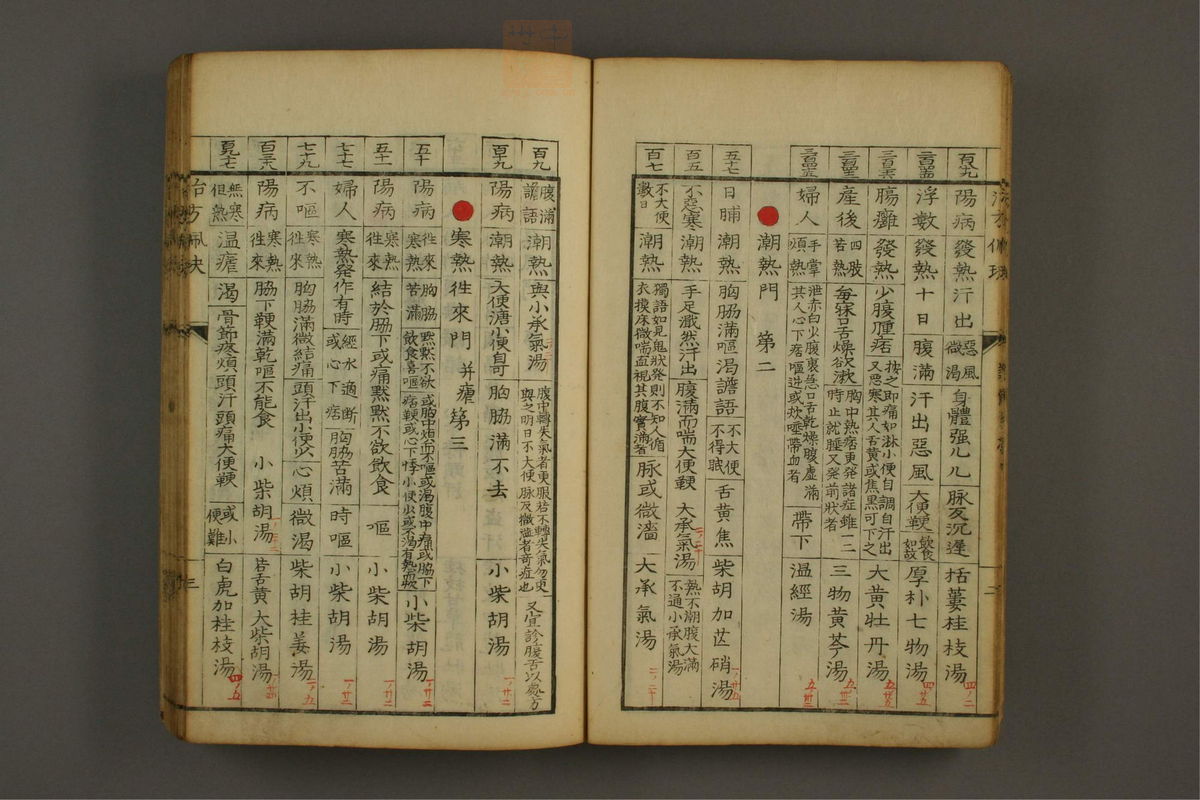 陽病 發熱 汗出 惡風 微渴 身體强几几 脉反沉遲 栝蔞桂枝湯
浮數 發熱 十日 腹滿 汗出惡風 大便鞕 飲食如故 厚朴七物湯
腸癰 發熱 少腹腫痞 按之即痛如淋小便自調自汗出 又惡寒其人舌黄或焦黑可下之 大黄牡丹湯
產後 四肢苦熱 每寐口舌燥 胸中熱痞更發諸症雖一二 時止就睡又發前狀者 三物黄芩湯
婦人 手掌煩熱 泄赤白少腹裏急口舌乾燥腹虛滿 其人心下痞嘔逆或炊唾帶血者 帶下 温經湯
潮熱門 第二
五十七 日晡 潮熱 胸脇滿嘔渴譫語 不大便 不得眠 舌黄焦 柴胡加芒硝湯
百五 不惡寒 潮熱 手足濈然汗出 腹滿而喘大便鞕 大承氣湯 熱不潮腹大滿 不通小承氣湯
百七 不大便數日 潮熱 獨語如見鬼狀發則不知人循 衣摸床微喘直視其腹實滿者 脉或微濇 大承氣湯
百九 腹滿譫語 潮熱 與小承氣湯 腹中轉失氣者更服若不轉失氣勿更 與之明日不大便脉反微濇者奇症也 又宜診腹舌以處方
百九 陽病 潮熱 大便溏小便自可 胸脇滿不去 小柴胡湯
寒熱徃來門 并瘧 第三
五十 陽病 徃來寒熱 胸脇苦滿 黙黙不欲飲食喜嘔 或胸中煩而不嘔或渴腹中痛或脇下 痞鞕或心下悸小便少或不渴有熱或欬 小柴胡湯
五十一 陽病 寒熱徃來 結於脇下或痛黙黙不欲飲食 嘔 小柴胡湯
七十七 婦人 寒熱發作有時 經水適斷 或心下痞 胸脇苦滿 時嘔 小柴胡湯
七十九 不嘔 寒熱徃來 胸脇滿微結痛 頭汗出小便少 心煩 微渴 柴胡桂姜湯
陽病 寒熱徃來 脇下鞕滿乾嘔不能食 小柴胡湯 若舌黄 大柴胡湯
無寒但熱 温瘧 渴 骨節疼煩頭汗頭痛大便鞕 或小便難 白虎加桂枝湯